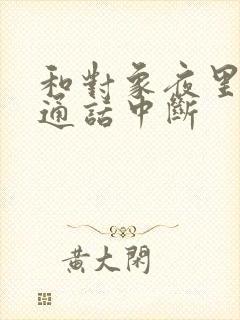 和對象夜里
通話中斷
黄大閑